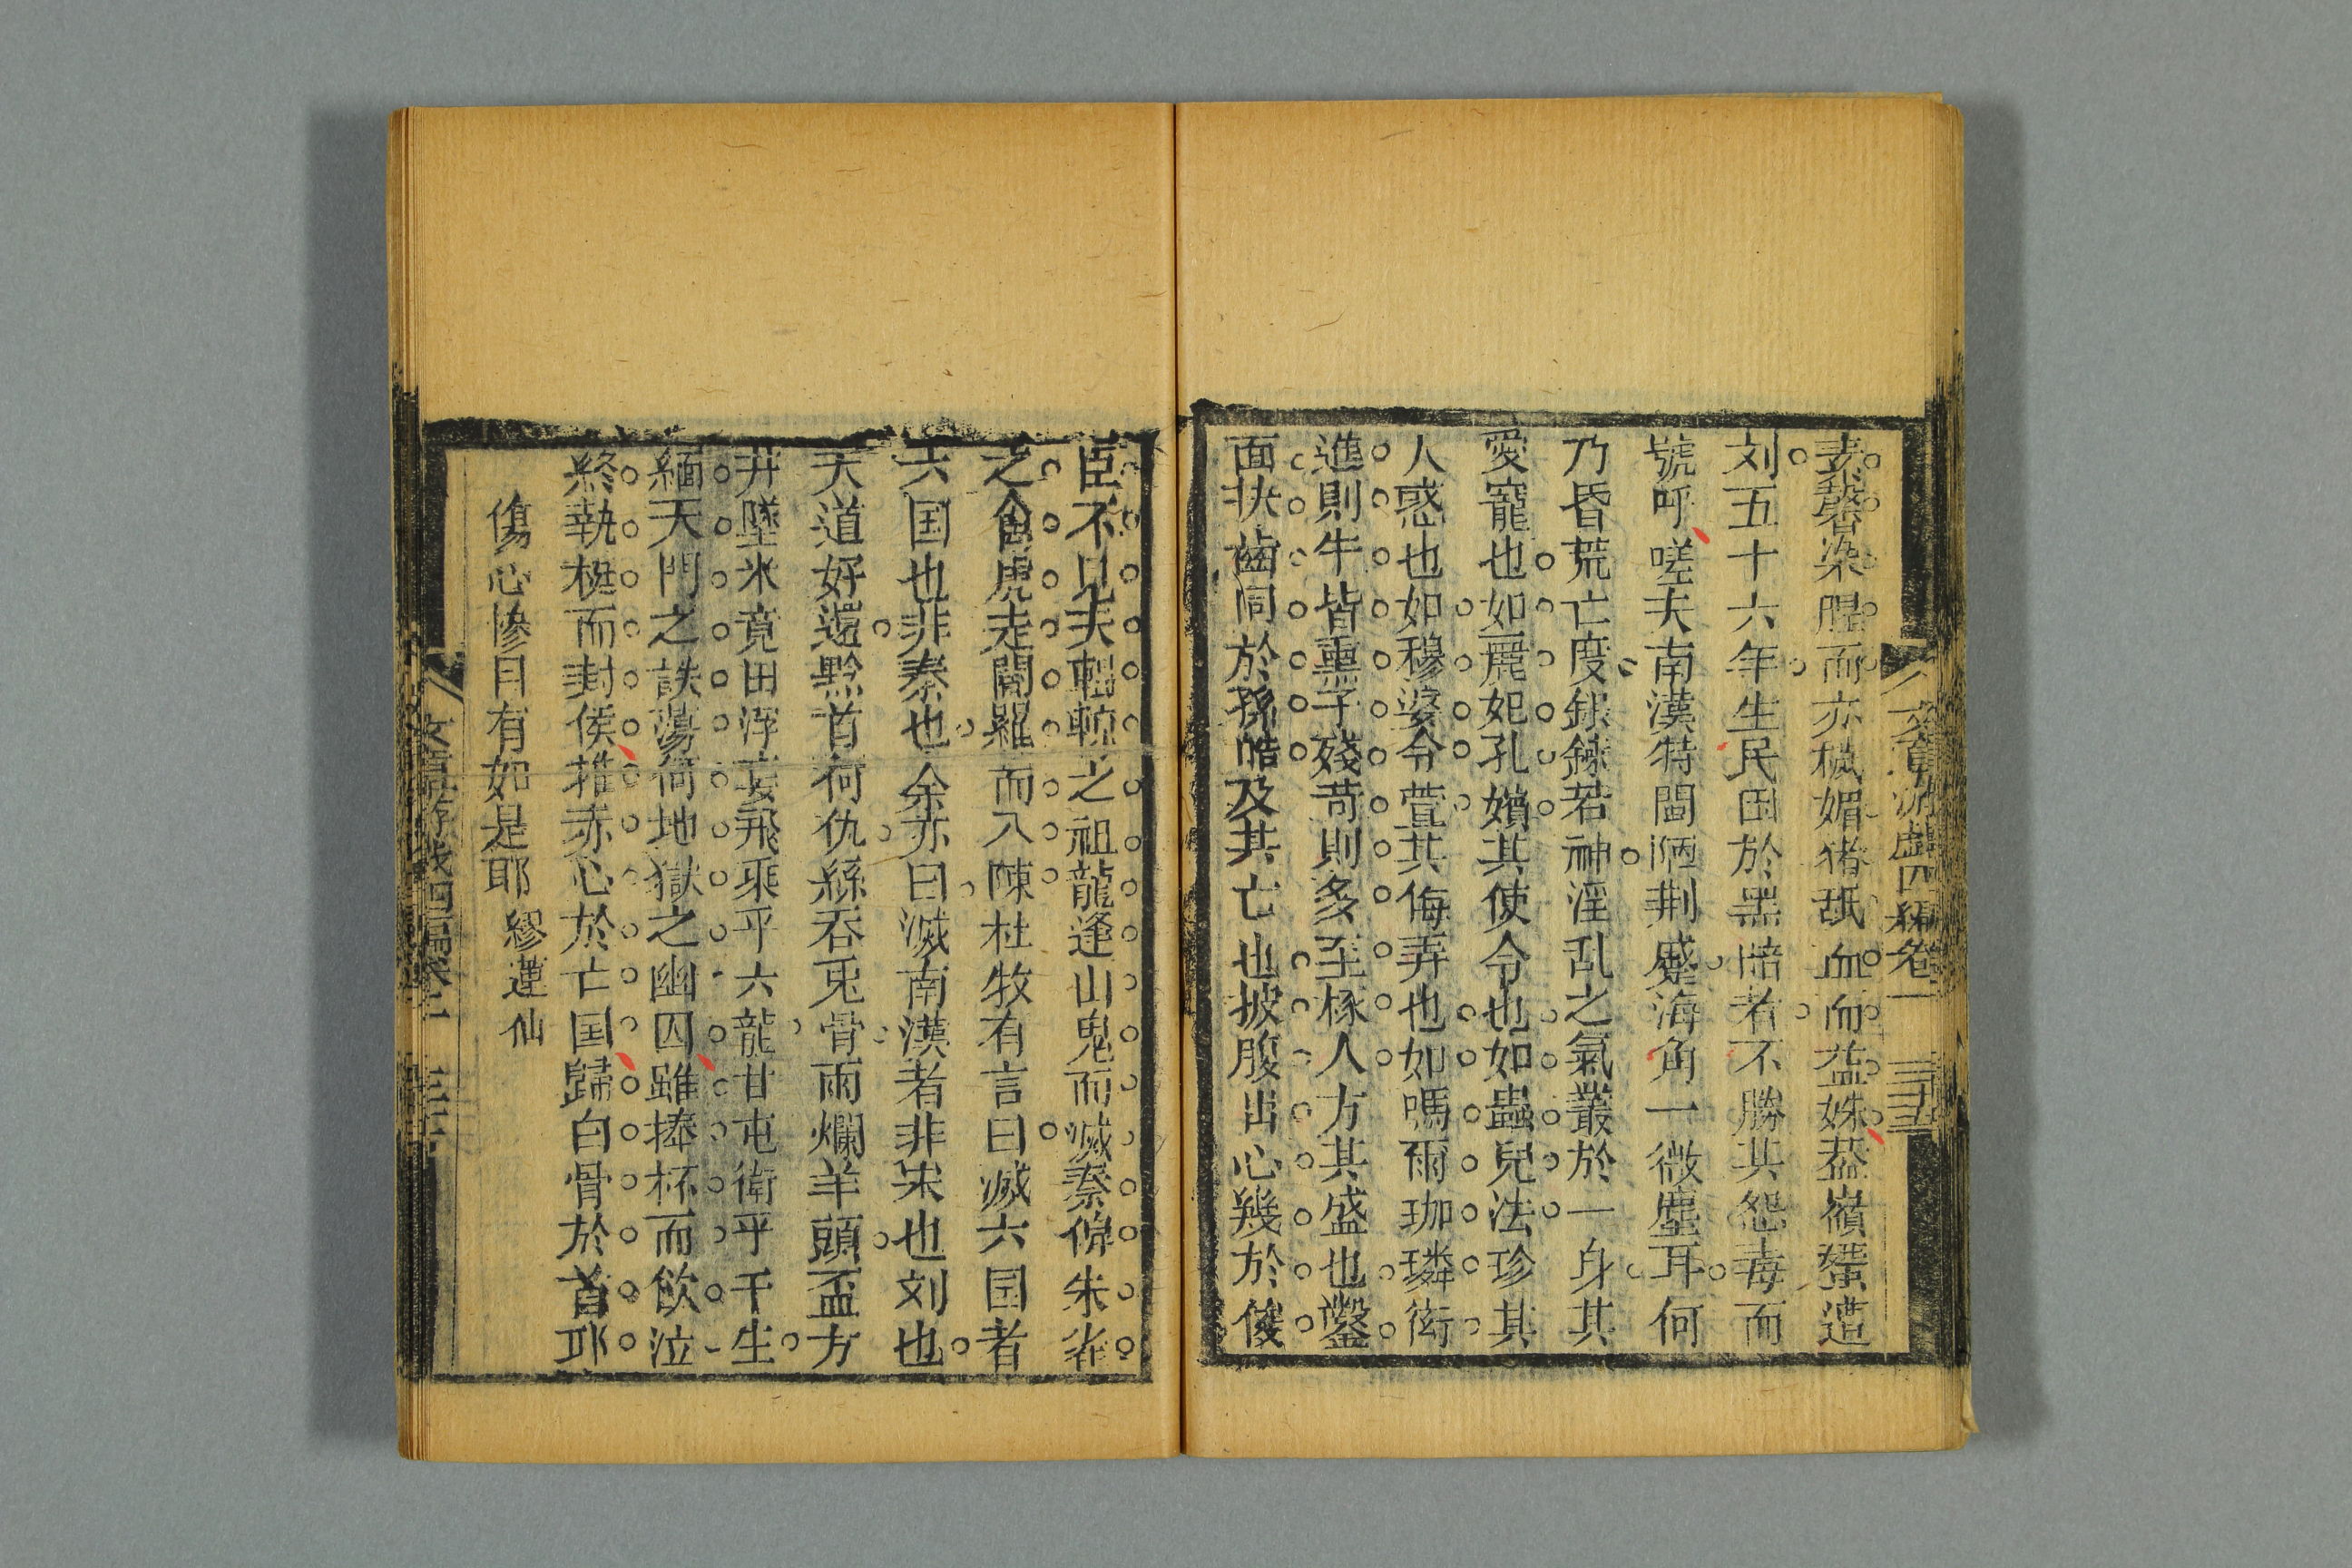 文章游戲四編卷一 三十五
素馨染腥而亦穢媚猪舐血而益姝蓋嶺蠻遭
刘五十六年生民困於黑暗者不勝其怨毒而
號呼嗟夫南漢特閩陋荆蠻海角一微塵耳何
乃昏荒亡度銀鍊若神淫乱之氣叢於一身其
愛寵也如麗妃孔嬪其使令也如蟲兒法珍其
人惑也如穆婆令萱其侮弄也如嗎爾珈璘衒
進則牛皆熏子殘苛則多至椓人方其盛也鑿
面抉齒同於孫皓及其亡也披腹出心幾於俊
臣不見夫轀輬之祖龍逢山鬼而滅秦偉朱雀
之 虎走閶羅而入陳杜牧有言曰滅六国者
六国也非秦也余亦曰滅南漢者非宋也刘也
天道好還黔首何仇絲吞兎骨雨爛羊頭盃方
井墜米竟田浮妄飛乘乎六龍甘屯衛乎千生
緬天門之詄蕩倘地獄之幽囚雖捧杯而飲泣
終執梃而封侯推赤心於亡国歸白骨於首邱
傷心慘目有如是耶 繆蓮仙
文章游戲四編卷一 三十